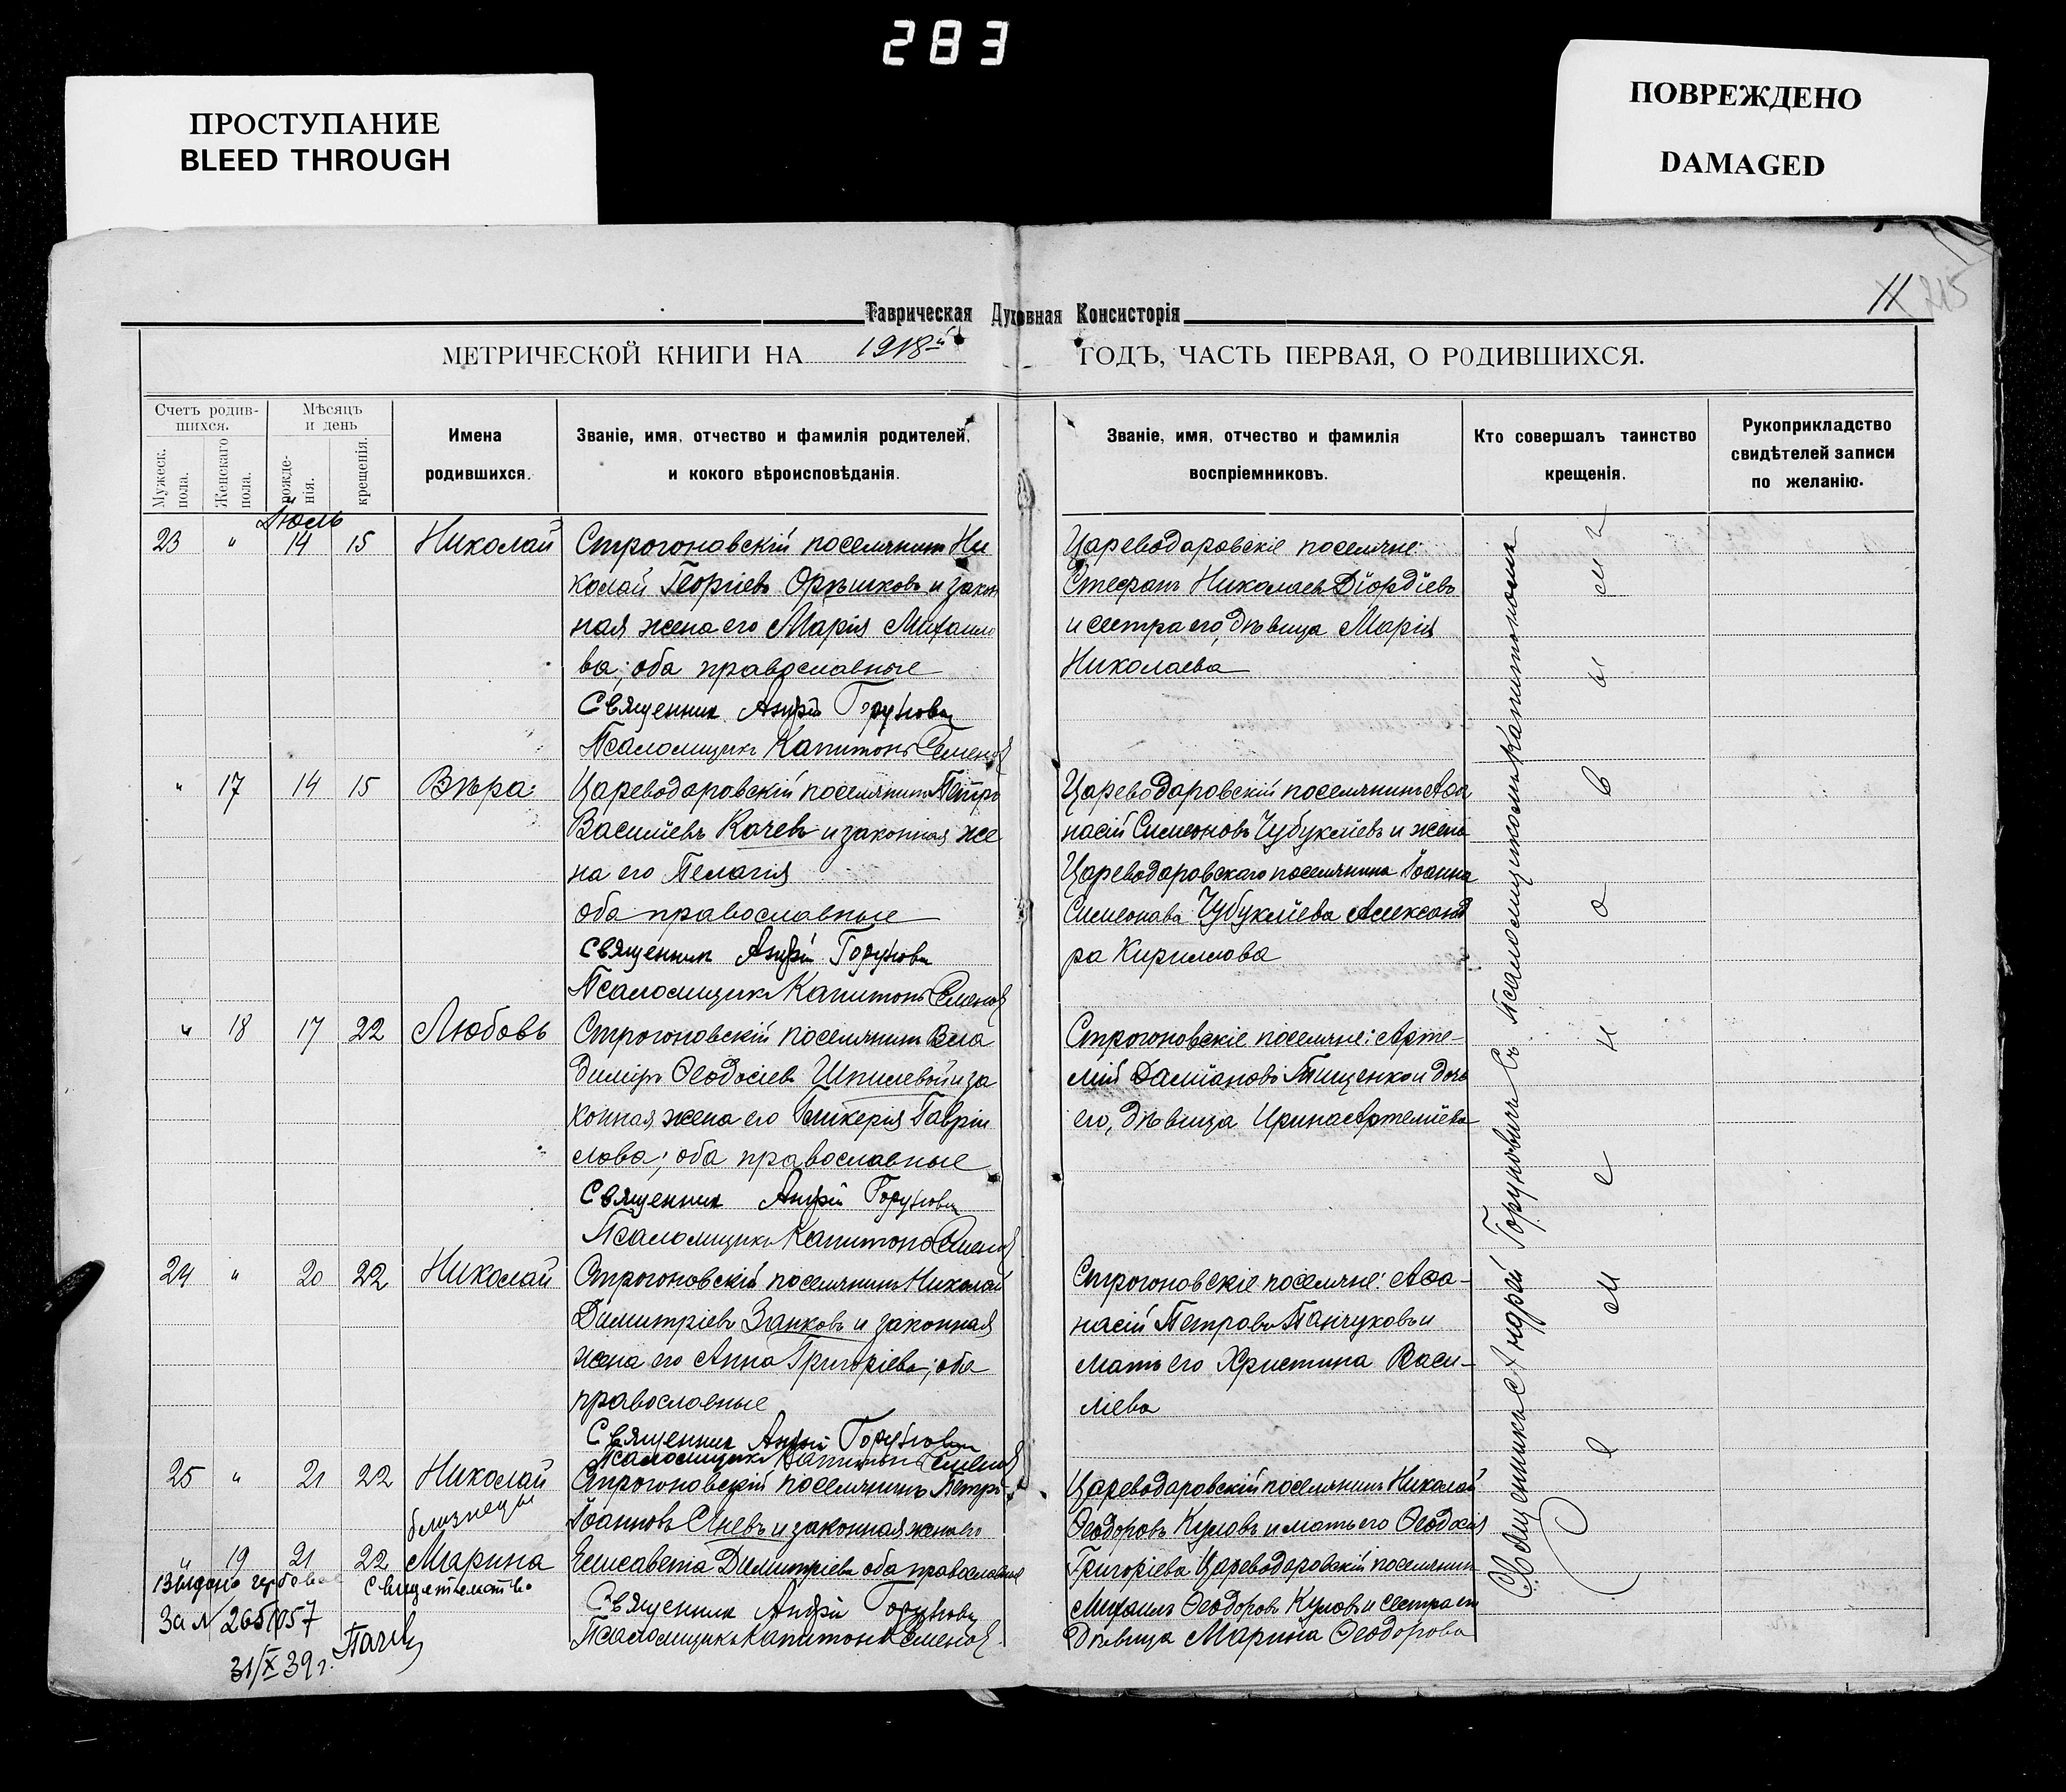 283
ПРОСТУПАНИЕ
BLEED THROUGH
ПОВРЕЖДЕНО
DAMAGED
11 215
Таврическая Духовная Консисторія
МЕТРИЧЕСКОЙ КНИГИ НА 1918й ГОДЪ, ЧАСТЬ ПЕРВАЯ, О РОДИВШИХСЯ.
Счетъ родив-
шихся.
Мужеск. пола.
Женскаго пола.
Мѣсяцъ
и день
рожде-
нія.
крещенія.
Имена
родившихся.
Званіе, имя, отчество и фамилія родителей,
и кокого вѣроисповѣданія.
Званіе, имя, отчество и фамилія
воспріемниковъ.
Кто совершалъ таинство
крещенія.
Рукоприкладство
свидѣтелей записи
по желанію.
Іюль
23 " 14 15 Николай
Строгоновскій поселянинъ Ни
колай Георгіевъ Орѣшковъ и закон
ная жена его Марія Михаило
ва; оба православные
Священник Андрій Горунович
Псаломщикъ Капитонъ Семенов
Цареводаровскіе поселяне:
Стефанъ Николаевъ Діордіевъ
и сестра его, дѣвица Марія
Николаева
" 17 14 15 Вѣра
Цареводаровскій поселянинъ Петръ
Василіевъ Качевъ и законная же
на его Пелагія
оба православные
Священник Андрій Горунович
Псаломщикъ Капитонъ Семенов
Цареводаровскій поселянинъ Аѳа
насій Симеоновъ Чубуклiевъ и жена
Цареводаровскаго поселянина Іоанна
Симеонова Чубуклiева Александ
ра Кириллова
" 18 17 22 Любовь
Строгоновскій поселянинъ Вла
димiръ Ѳеодосіевъ Шпилевой и за
конная жена его Гликерія Гаврiи
лова; оба православные
Священник Андрій Горунович
Псаломщикъ Капитонъ Семенов
Строгоновскіе поселяне: Арте-
мій Даміановъ Тищенко и дочь
его, дѣвица Ирина Артеміева
24 " 20 22 Николай
Строгоновскій поселянинъ Николай
Димитріевъ Занковъ и законная
жена его Анна Григоріева; оба
православные
Священник Андрій Горунович
Псаломщикъ Капитонъ Семенов
Строгоновскіе поселяне: Аѳа-
насій Петровъ Панчуковъ и
мать его Христина Васи-
ліева
25 " 21 22 Николай
близнецы
" 19 21 22 Марина
Строгоновскій поселянинъ Петръ
Іоанновъ и законная жена его
Елисавета Димитріева оба православные
Священник Андрій Горунович
Псаломщикъ Капитонъ Семенов
Цареводаровскій поселянинъ Николай
Ѳеодоровъ Куловъ и мать его Ѳеодосія
Григоріева Цареводаровскій поселянин
Михаилъ Ѳеодоровъ Куловъ и сестра его
дѣвица Марина Ѳеодорова
Выдано гербовое свидетельство
За № 2651057
31/X 39 г.
Священникъ Андрей Горуновичъ съ Псаломщикомъ Капитономъ
Семеновымъ